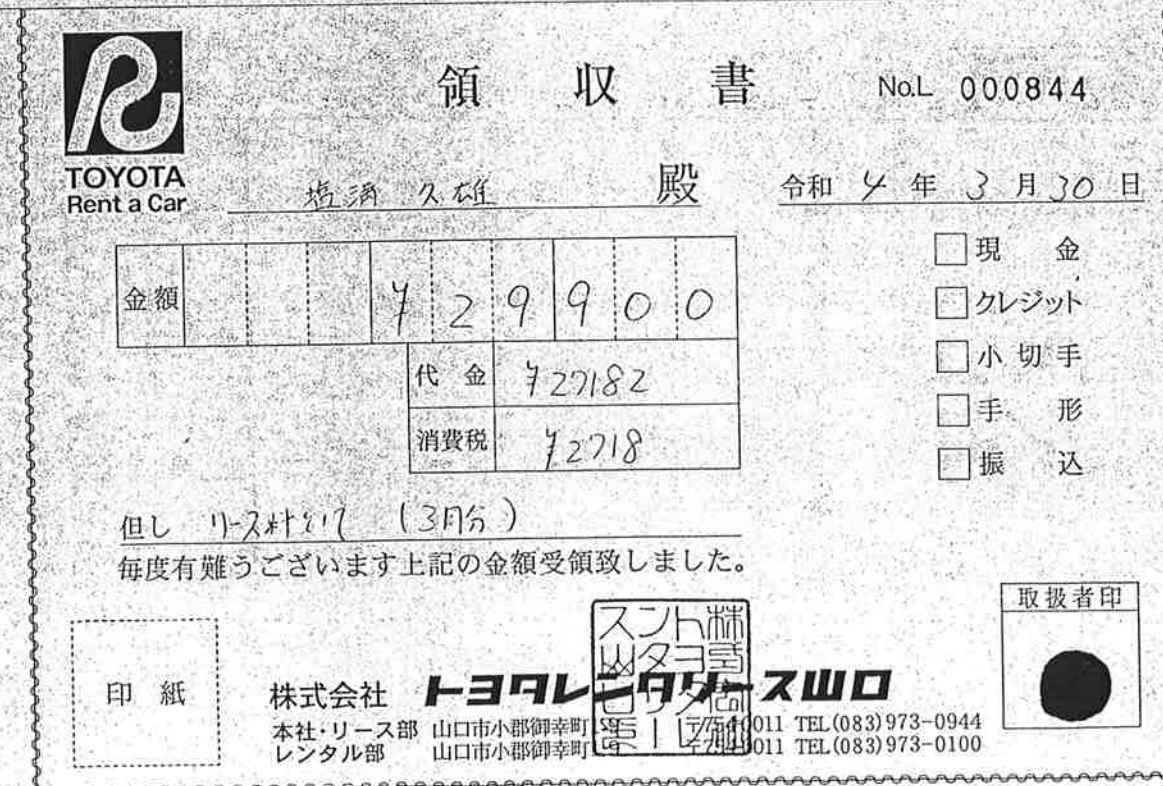 領 収 書 No.L 000844
TOYOTA
Rent a Car
久雄 殿 令和 4 年 3 月 30 日
金額 ¥29900
代 金 ¥27182
消費税 ¥2718
現 金
クレジット
小 切 手
手 形
振 込
但し リース料として (3月分)
毎度有難うございます上記の金額受領致しました。
取扱者印
印 紙
株式会社 トヨタレンタリース山口
本社・リース部 山口市小郡御幸町 〒754-0011 TEL(083)973-0944
レンタル部 山口市小郡御幸町 〒754-0011 TEL(083)973-0100